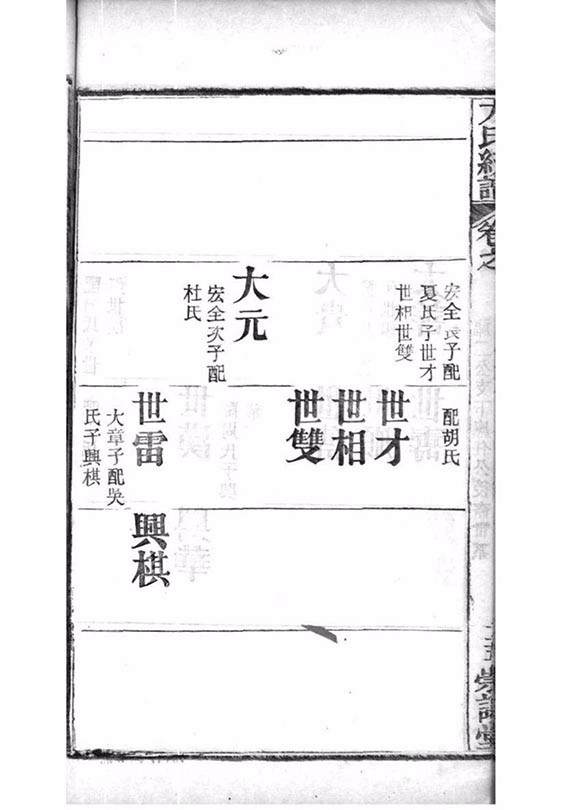 氏
譜
卷之
宏全長子配
夏氏子世才
世相世雙
大元
宏全次子配
杜氏
配胡氏
世才
世相
世雙
世雷
大章子配吳
氏子興棋
興棋